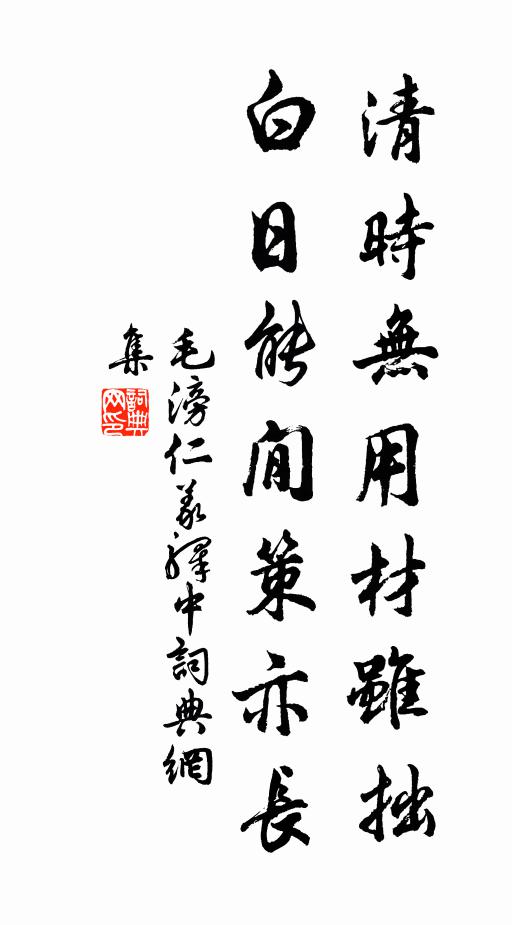 清時無用材雖拙
白日能閒策亦長
毛滂仁義驛中詞典網
集
詞典網印